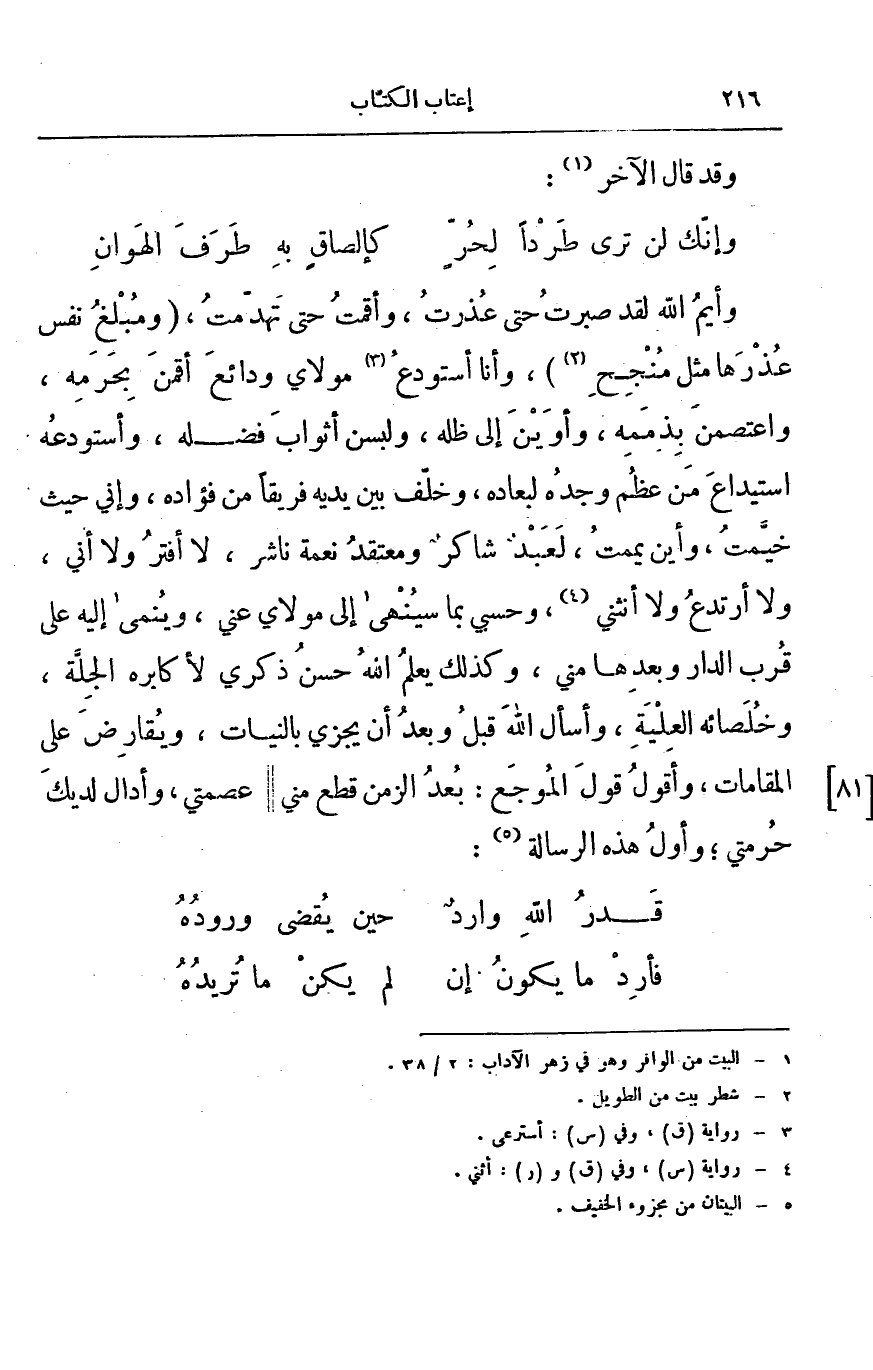 ٢١٦ إعتاب الكتّاب
وقد قال الآخر (١) :
وإنّك لن ترى طَرْداً لِحُرّ كإلصاقٍ بهِ طَرَفَ الهَوانِ
وأيمُ الله لقد صبرتُ حتى عُذرتُ ، وأقمتُ حتى تهدّمتُ ، ( ومُبْلغُ نفس
عُذْرَها مثل مُنْجِحِ (٢) ) ، وأنا أستودعُ (٣) مولاي ودائعَ أقمنَ بِحَرَمِه ،
واعتصمنَ بِذِمَمِه ، وأوَيْنَ إلى ظله ، ولبسن أثوابَ فضله ، وأستودعُه
استيداعَ مَن عظُم وجدُه لبعاده ، وخلّف بين يديه فريقاً من فؤاده ، وإني حيث
خيَّمتُ ، وأين يممتُ ، لَعَبْدٌ شاكرٌ ومعتقدُ نعمة ناشر ، لا أفترُ ولا أني ،
ولا أرتدعُ ولا أنثني (٤) ، وحسبي بما سيُنْهى إلى مولاي عني ، ويُنمى إليه على
قُرب الدار وبعدِها مني ، وكذلك يعلمُ اللهُ حسنُ ذكري لأكابره الجِلَّة ،
وخُلَصائه العِلْيَةِ ، وأسأل اللهَ قبلُ وبعدُ أن يجزي بالنيات ، ويُقارِضَ على
المقامات ، وأقولُ قولَ المُوجَع : بُعدُ الزمن قطع مني || عصمتي ، وأدال لديكَ [٨١]
حُرمتي ؛ وأولُ هذه الرسالة (٥) :
قَـدرُ اللهِ واردٌ حين يُقضى ورودُهُ
فأرِدْ ما يكونُ إن لم يكنْ ما تُريدُهُ
١ - البيت من الوافر وهو في زهر الآداب : ٢ / ٣٨ .
٢ - شطر بيت من الطويل .
٣ - رواية (ق) ، وفي (س) : أسترعى .
٤ - رواية (س) ، وفي (ق) و (ر) : أثني .
٥ - البيتان من مجزوء الخفيف .